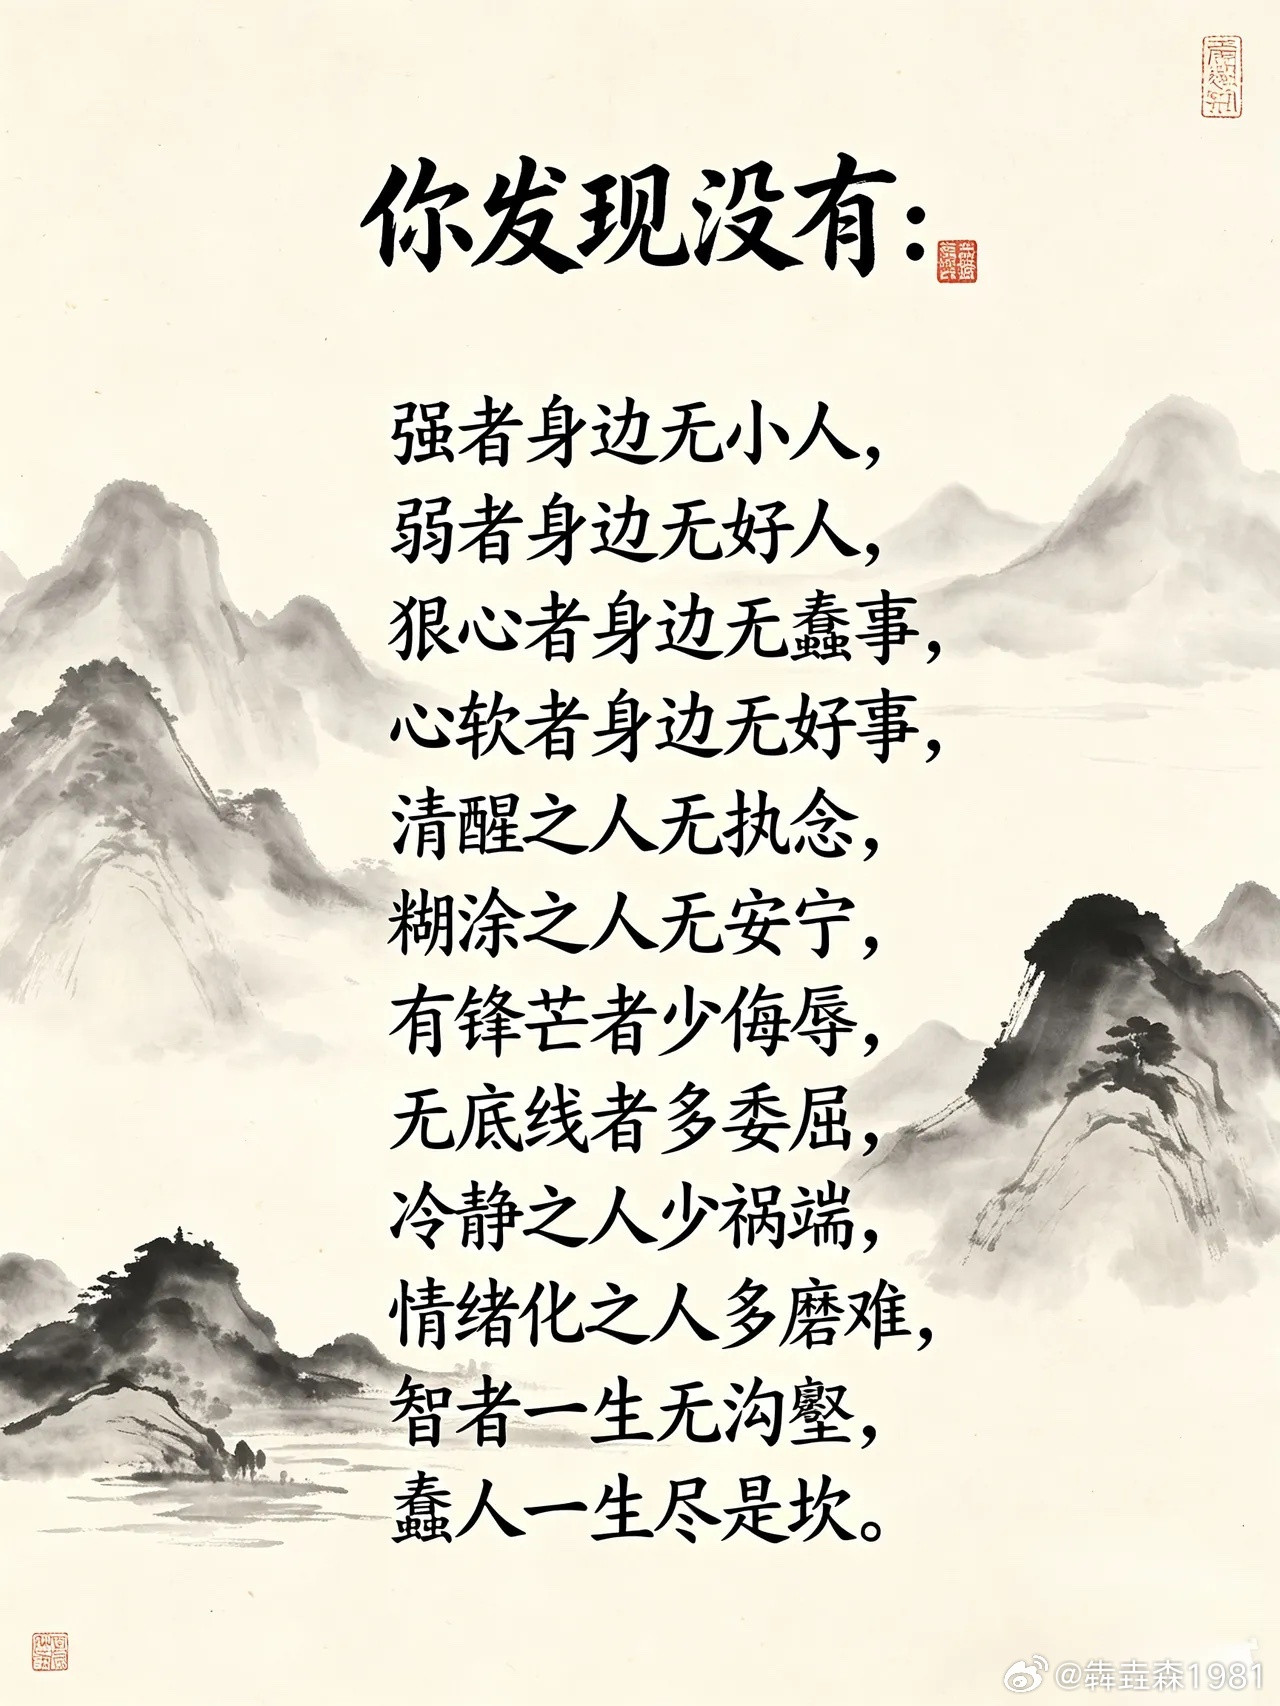 你发现没有：
强者身边无小人，
弱者身边无好人，
狠心者身边无蠢事，
心软者身边无好事，
清醒之人无执念，
糊涂之人无安宁，
有锋芒者少侮辱，
无底线者多委屈，
冷静之人少祸端，
情绪化之人多磨难，
智者一生无沟壑，
蠢人一生尽是坎。
@犇垚森1981